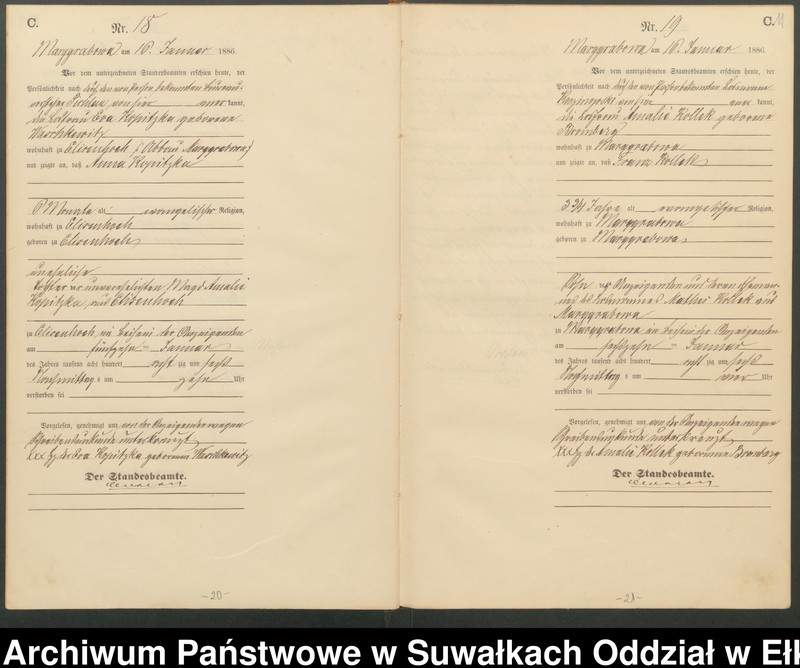 C.
Nr. 18
Marggrabowa am 16. Januar 1886.
Vor dem unterzeichneten Standesbeamten erschien heute, der
Persönlichkeit nach durch den von Person bekannten
von hier kannt,
die Losfrau Eva Kopitzka geborene
wohnhaft zu (Abbau Marggrabowa)
und zeigte an, daß Anna Kopitzka
6 Monate alt, evangelischer Religion,
wohnhaft zu
geboren zu
uneheliche
Tochter der unverehelichten Magd Amalie
Kopitzka aus
zu im Beisein der Anzeigenden
am fünfzehn = Januar
des Jahres tausend acht hundert acht zig und sechs
Nachmittags um zehn Uhr
verstorben sei
Vorgelesen, genehmigt und von der Anzeigenden wegen
Schreibensunkunde unterkreuzt
xxx Hz. der Eva Kopitzka geborenen
Der Standesbeamte.
-20-
C. 11
Nr. 19
Marggrabowa am 16. Januar 1886.
Vor dem unterzeichneten Standesbeamten erschien heute, der
Persönlichkeit nach durch den von Person bekannten
von hier kannt,
die Losfrau Amalie Kollek geborene
Bromberg
wohnhaft zu Marggrabowa
und zeigte an, daß Franz Kollek
3 3/4 Jahre alt, evangelischer Religion,
wohnhaft zu Marggrabowa
geboren zu Marggrabowa
Sohn der Anzeigenden und deren Ehemannes
des Kollek aus
Marggrabowa
zu Marggrabowa im Beisein der Anzeigenden
am sechszehn = Januar
des Jahres tausend acht hundert acht zig und sechs
Nachmittags um vier Uhr
verstorben sei
Vorgelesen, genehmigt und von der Anzeigenden wegen
Schreibensunkunde unterkreuzt
xxx Hz. der Amalie Kollek geborenen Bromberg
Der Standesbeamte.
-21-
Archiwum Państwowe w Suwałkach Oddział w Ełk